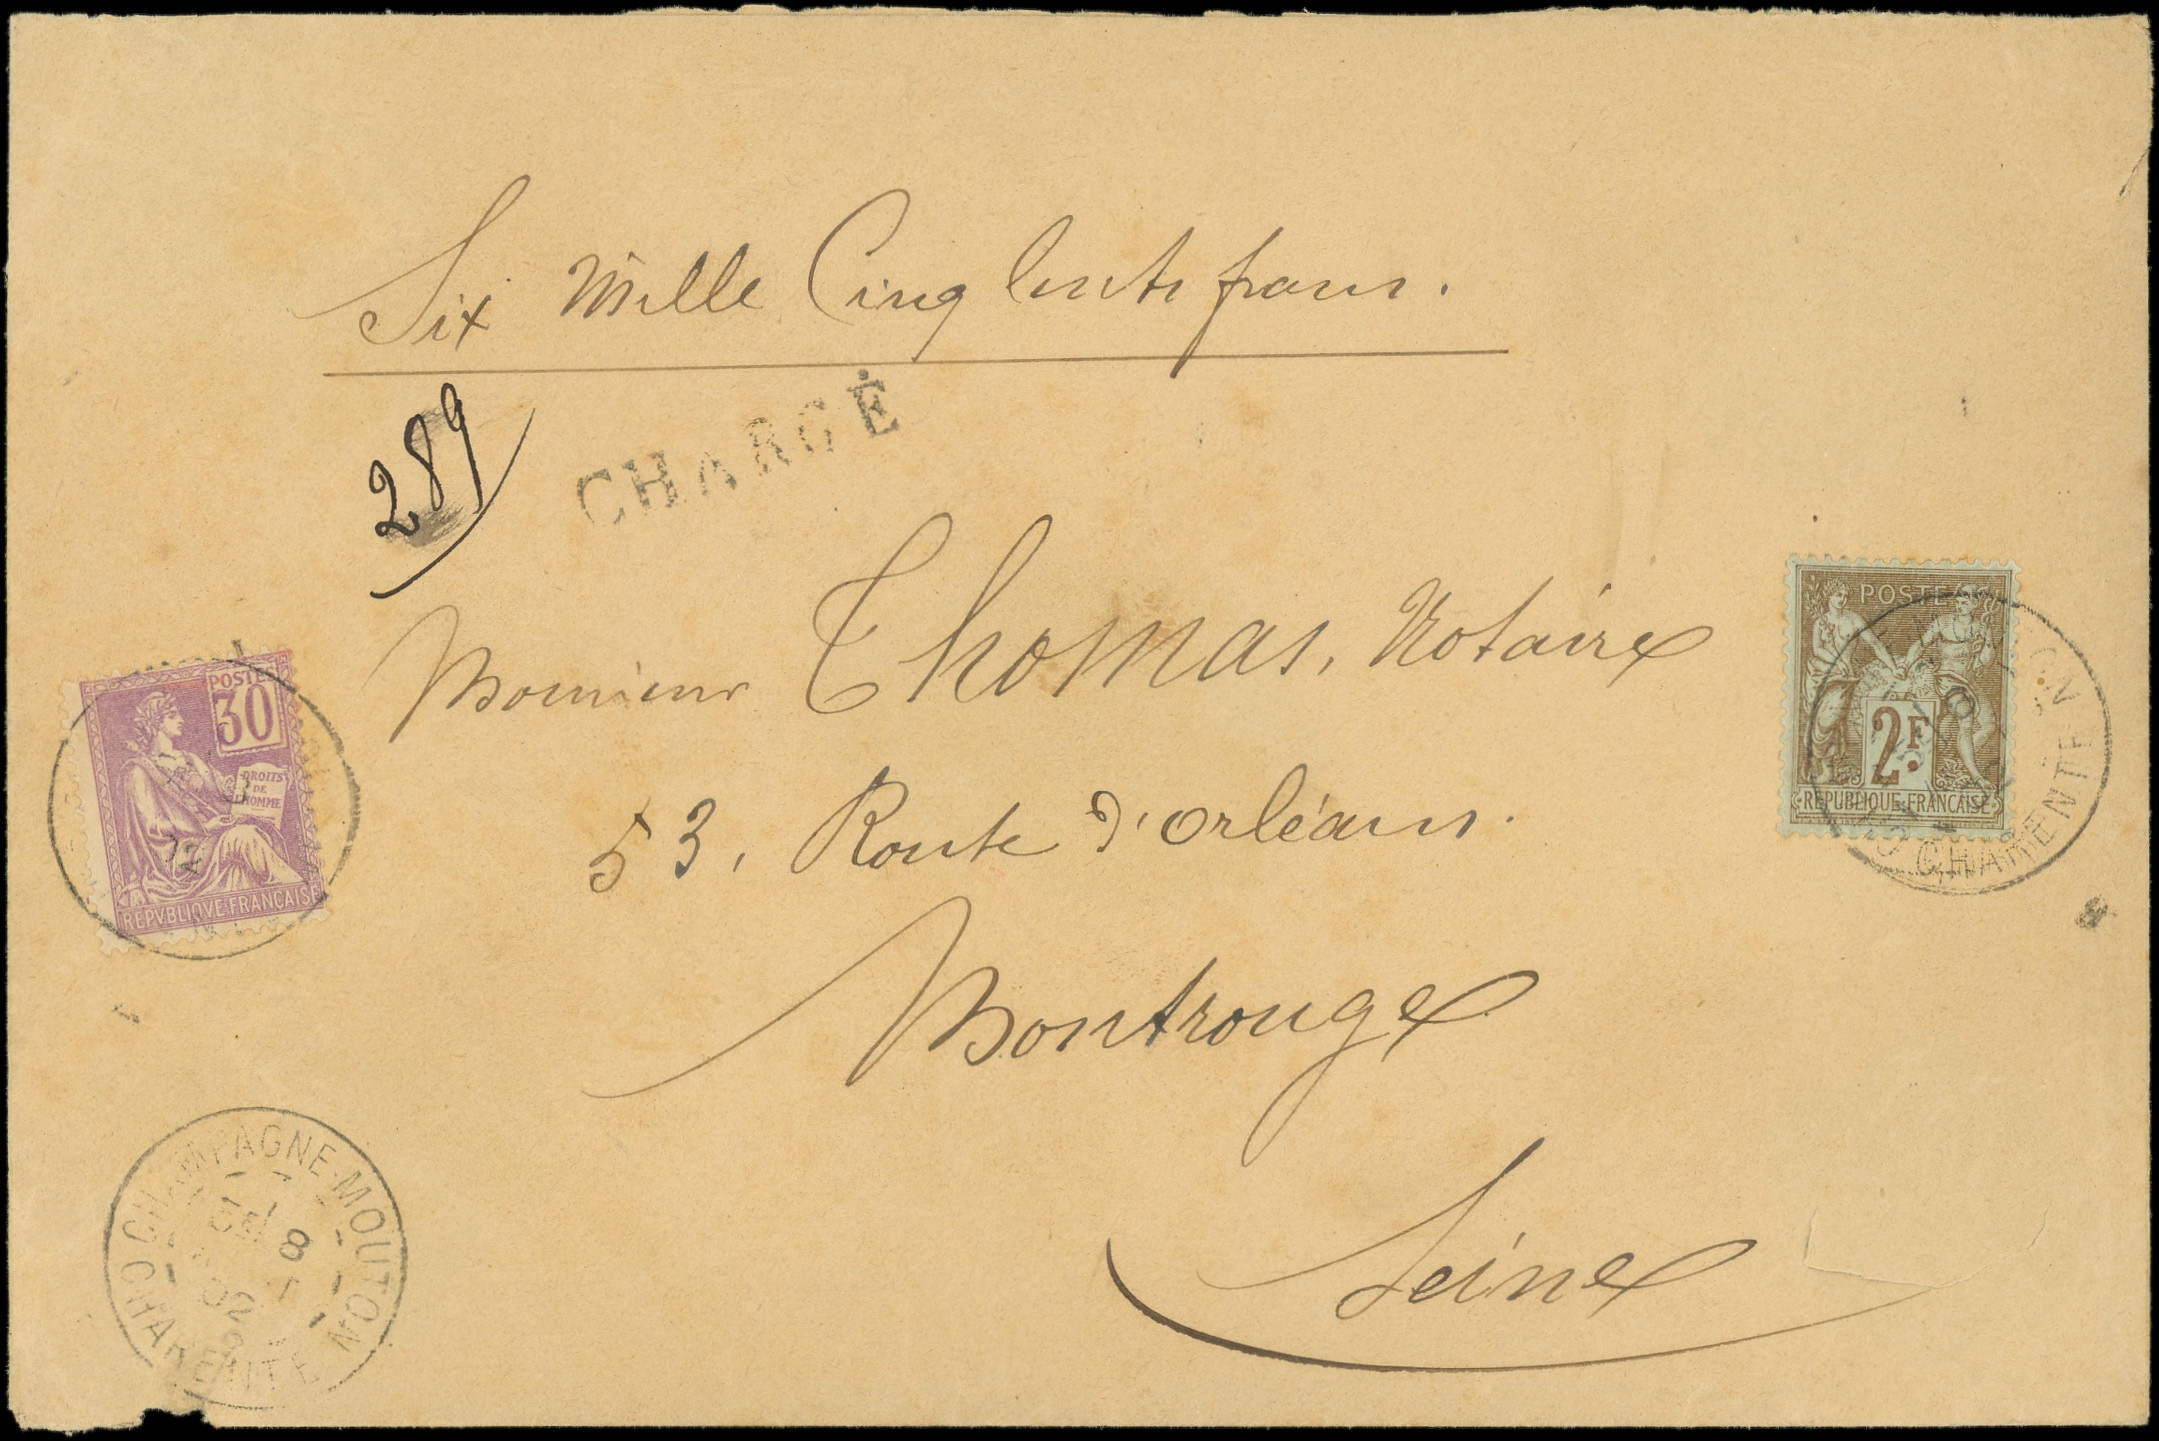 Six Mille Cinq Cents francs.
289
CHARGÉ
Monsieur Thomas, Notaire
53, Route d'Orléans.
Montrouge
Seine
POSTES
30
DROITS
DE
L'HOMME
REPVBLIQVE FRANÇAISE
POSTE
2F.
REPUBLIQUE FRANÇAISE
CHARENTE
CHAMPAGNE-MOUTON
8
02
CHARENTE